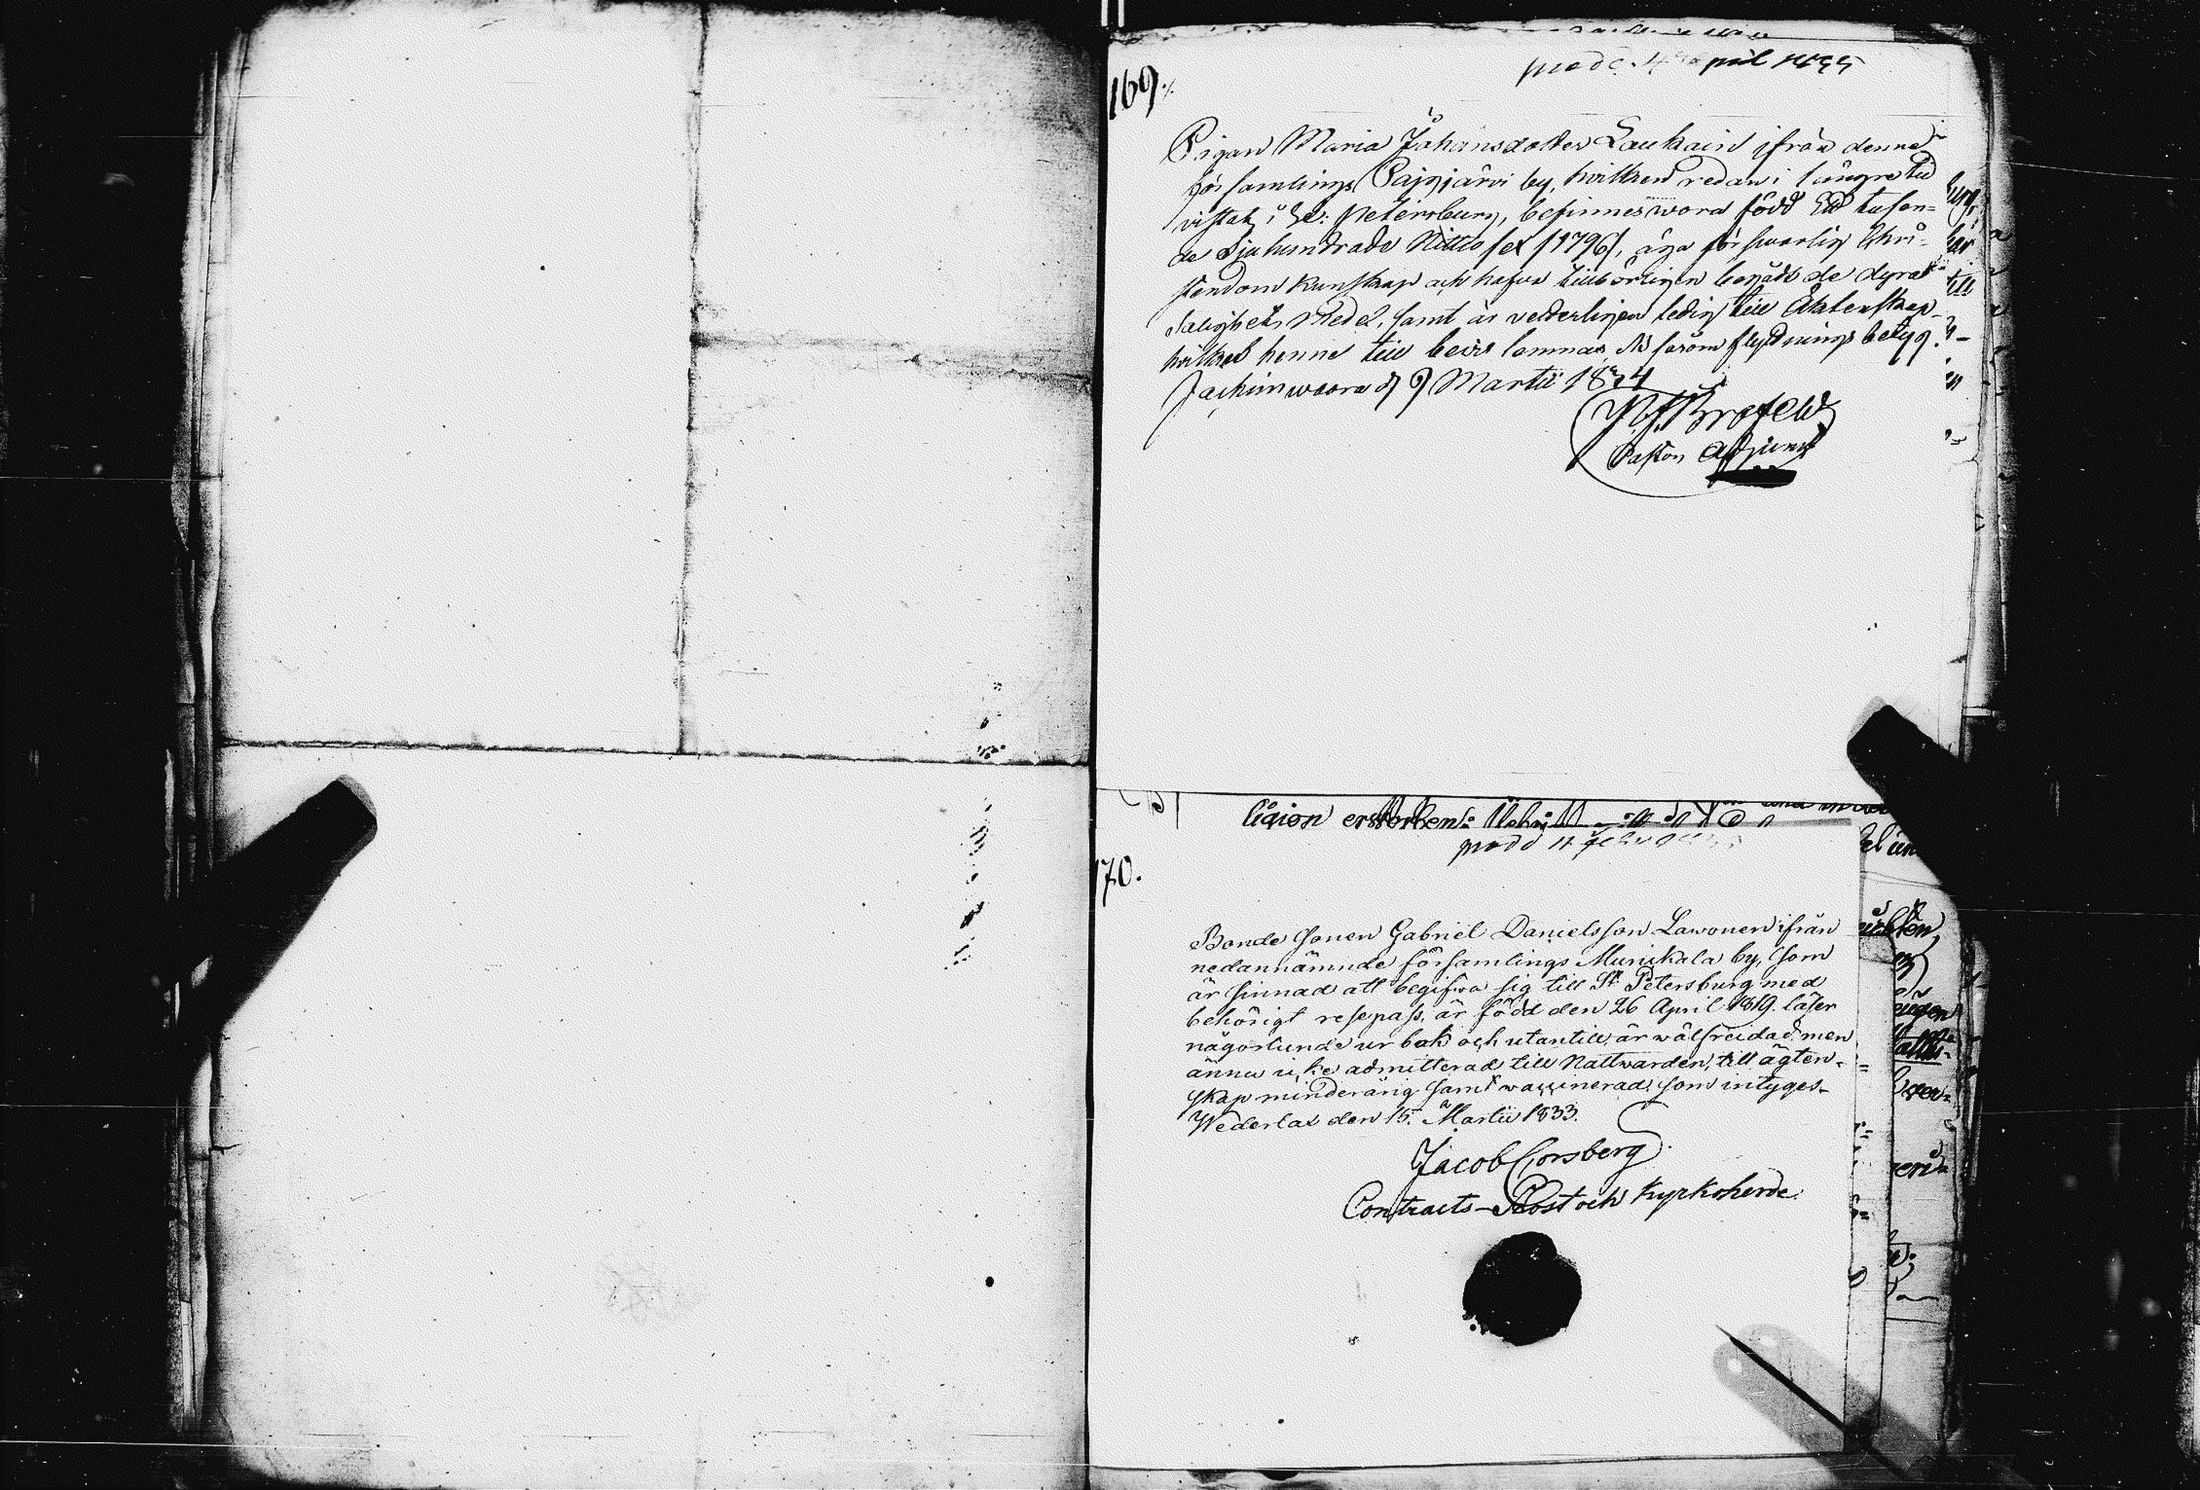 169.
prod. 4 April
Pigan Maria Johansdotter Laukain ifrån denna
församlings Pajyjärvi by, hvilken redan i längre tid
vistats i St: Petersburg, befinnes vara född Ett tusen-
de Sjuhundrade Nittio sex /1796/, äga försvarlig Chri-
stendom kunskap och hafva tillbörligen begådt de dyra
Salighets Medel, samt är vederligen ledig till Äktenskap-
hvilket henne till bevis lemnas, såsom flyttnings betyg.
Jachimvaara d 9 Martii 1834
Brofeldt
Pastors Adjunct
ligion erstorben:
prod 11 Febr
170.
Bonde Sonen Gabriel Danielsson Lawonen ifrån
nedannämnde församlings Murikala by, som
är sinnad att begifva sig till St Petersburg med
behörigt respass, är född den 26 April 1819. läser
någorlunda ur bok och utantill, är wälfreidad men
ännu icke admitterad till Nattwarden, till ägten-
skap minderårig samt waccinerad, som intyges.
Wederlax den 15. Martii 1833.
Jacob Forsberg
Contracts-Prost och Kyrkoherde.